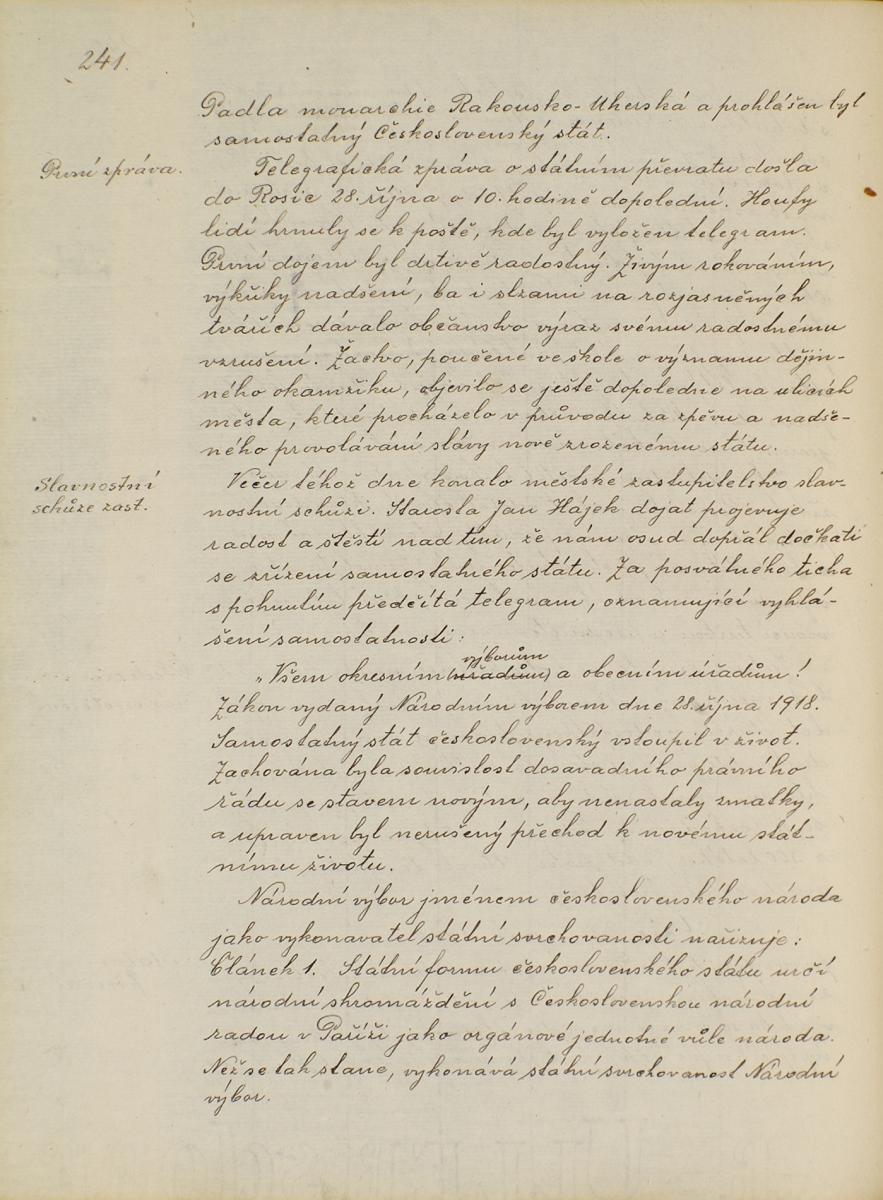 241.
Padla monarchie Rakousko-Uherská a prohlášen byl
samostatný Československý stát.
První zpráva.
Telegrafická zpráva o státním převratu došla
do Rosic 28. října o 10. hodině dopolední. Houfy
lidí hrnuly se k poště, kde byl vyložen telegram.
První dojem byl drtivě radostný. Živým rokováním,
výkřiky nadšení, ba i slzami na rozjasněných
tvářích dávalo občanstvo výraz svému radostnému
vzrušení. Žactvo, poučené ve škole o významu dějin-
ného okamžiku, objevilo se ještě dopoledne na ulicích
města, které procházelo v průvodu za zpěvu a nadše-
ného provolávání slávy nově zrozenému státu.
Slavnostní
schůze zast.
Večer téhož dne konalo městské zastupitelstvo slav-
nostní schůzi. Starosta Jan Hájek dojat projevuje
radost a štěstí nad tím, že nám osud dopřál dočkati
se zřízení samostatného státu. Za posvátného ticha
s pohnutím předčítá telegram, oznamující vyhlá-
šení samostatnosti:
výborům
„Všem okresním (úřadům) a obecním úřadům!
Zákon vydaný Národním výborem dne 28. října 1918.
Samostatný stát československý vstoupil v život.
Zachována byla souvislost dosavadního právního
řádu se stavem novým, aby nenastaly zmatky,
a upraven byl nerušený přechod k novému stát-
nímu životu.
Národní výbor jménem československého národa
jako vykonavatel státní svrchovanosti nařizuje:
Článek 1. Státní formu československého státu určí
národní shromáždění s Československou národní
radou v Paříži jako orgánové jednotné vůle národa.
Než se tak stane, vykonává státní svrchovanost Národní
výbor.